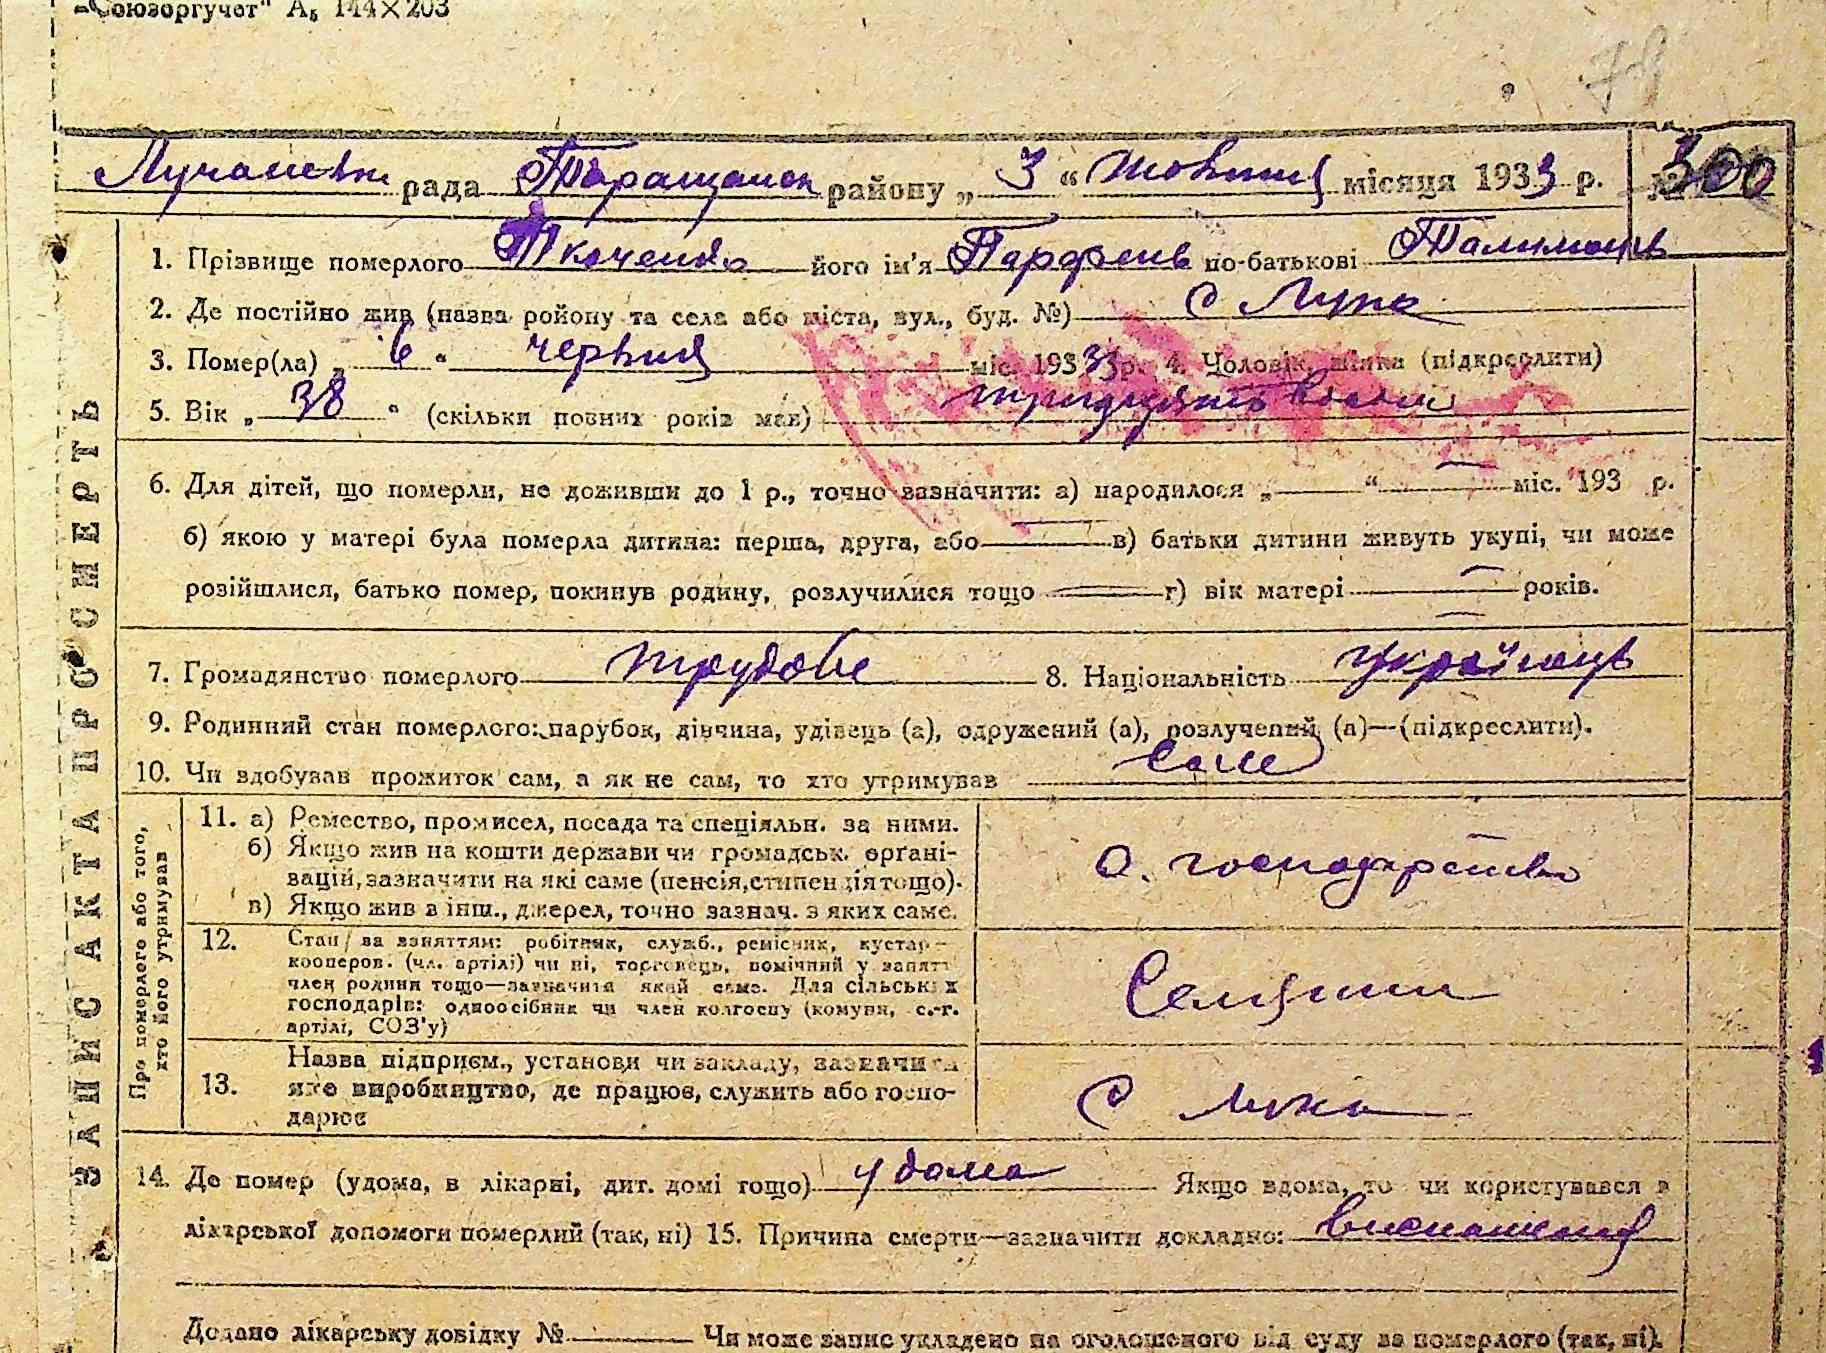 "Союзоргучет" А₅ 144×203
79
Лучанська рада Таращанськ району „ 3 “ Жовтня місяця 1933 р. № 300
ЗАПИС АКТА ПРО СМЕРТЬ
1. Прізвище померлого Ткаченко його ім'я Парфень по-батькові Талимонів
2. Де постійно жив (назва ройону та села або міста, вул., буд. №) с Лука
3. Помер(ла) „ 6 “ червня міс. 1933 р. 4. Чоловік, жінка (підкреслити)
5. Вік „ 38 “ (скільки повних років мав) тридцять вісім
6. Для дітей, що померли, не доживши до 1 р., точно зазначити: а) народилося „ — “ — міс. 193 р.
б) якою у матері була померла дитина: перша, друга, або — в) батьки дитини живуть укупі, чи може
розійшлися, батько помер, покинув родину, розлучилися тощо — г) вік матері — років.
7. Громадянство померлого трудове 8. Національність Українець
9. Родинний стан померлого: парубок, дівчина, удівець (а), одружений (а), розлучений (а)—(підкреслити).
10. Чи здобував прожиток сам, а як не сам, то хто утримував сам
Про померлого або того, хто його утримував
11. а) Ремество, промисел, посада та спеціяльн. за ними.
б) Якщо жив на кошти держави чи громадськ. орґані-
зацій, зазначити на які саме (пенсія, стипендія тощо).
в) Якщо жив з інш., джерел, точно зазнач. з яких саме.
С. господарство
12. Стан за заняттям: робітник, служб., ремісник, кустар-
кооперов. (чл. артілі) чи ні, торговець, помічний у занятт
член родини тощо—зазначити який саме. Для сільських
господарів: одноосібник чи член колгоспу (комуни, с.-г.
артілі, СОЗ'у)
Селянин
13. Назва підприєм., установи чи закладу, зазначити
яке виробництво, де працює, служить або госпо-
дарює
с Лука
14. Де помер (удома, в лікарні, дит. домі тощо) удома Якщо вдома, то чи користувався з
лікарської допомоги померлий (так, ні) 15. Причина смерти—зазначити докладно: виснаження
Додано лікарську довідку № Чи може запис укладено на оголошеного від суду за померлого (так, ні).